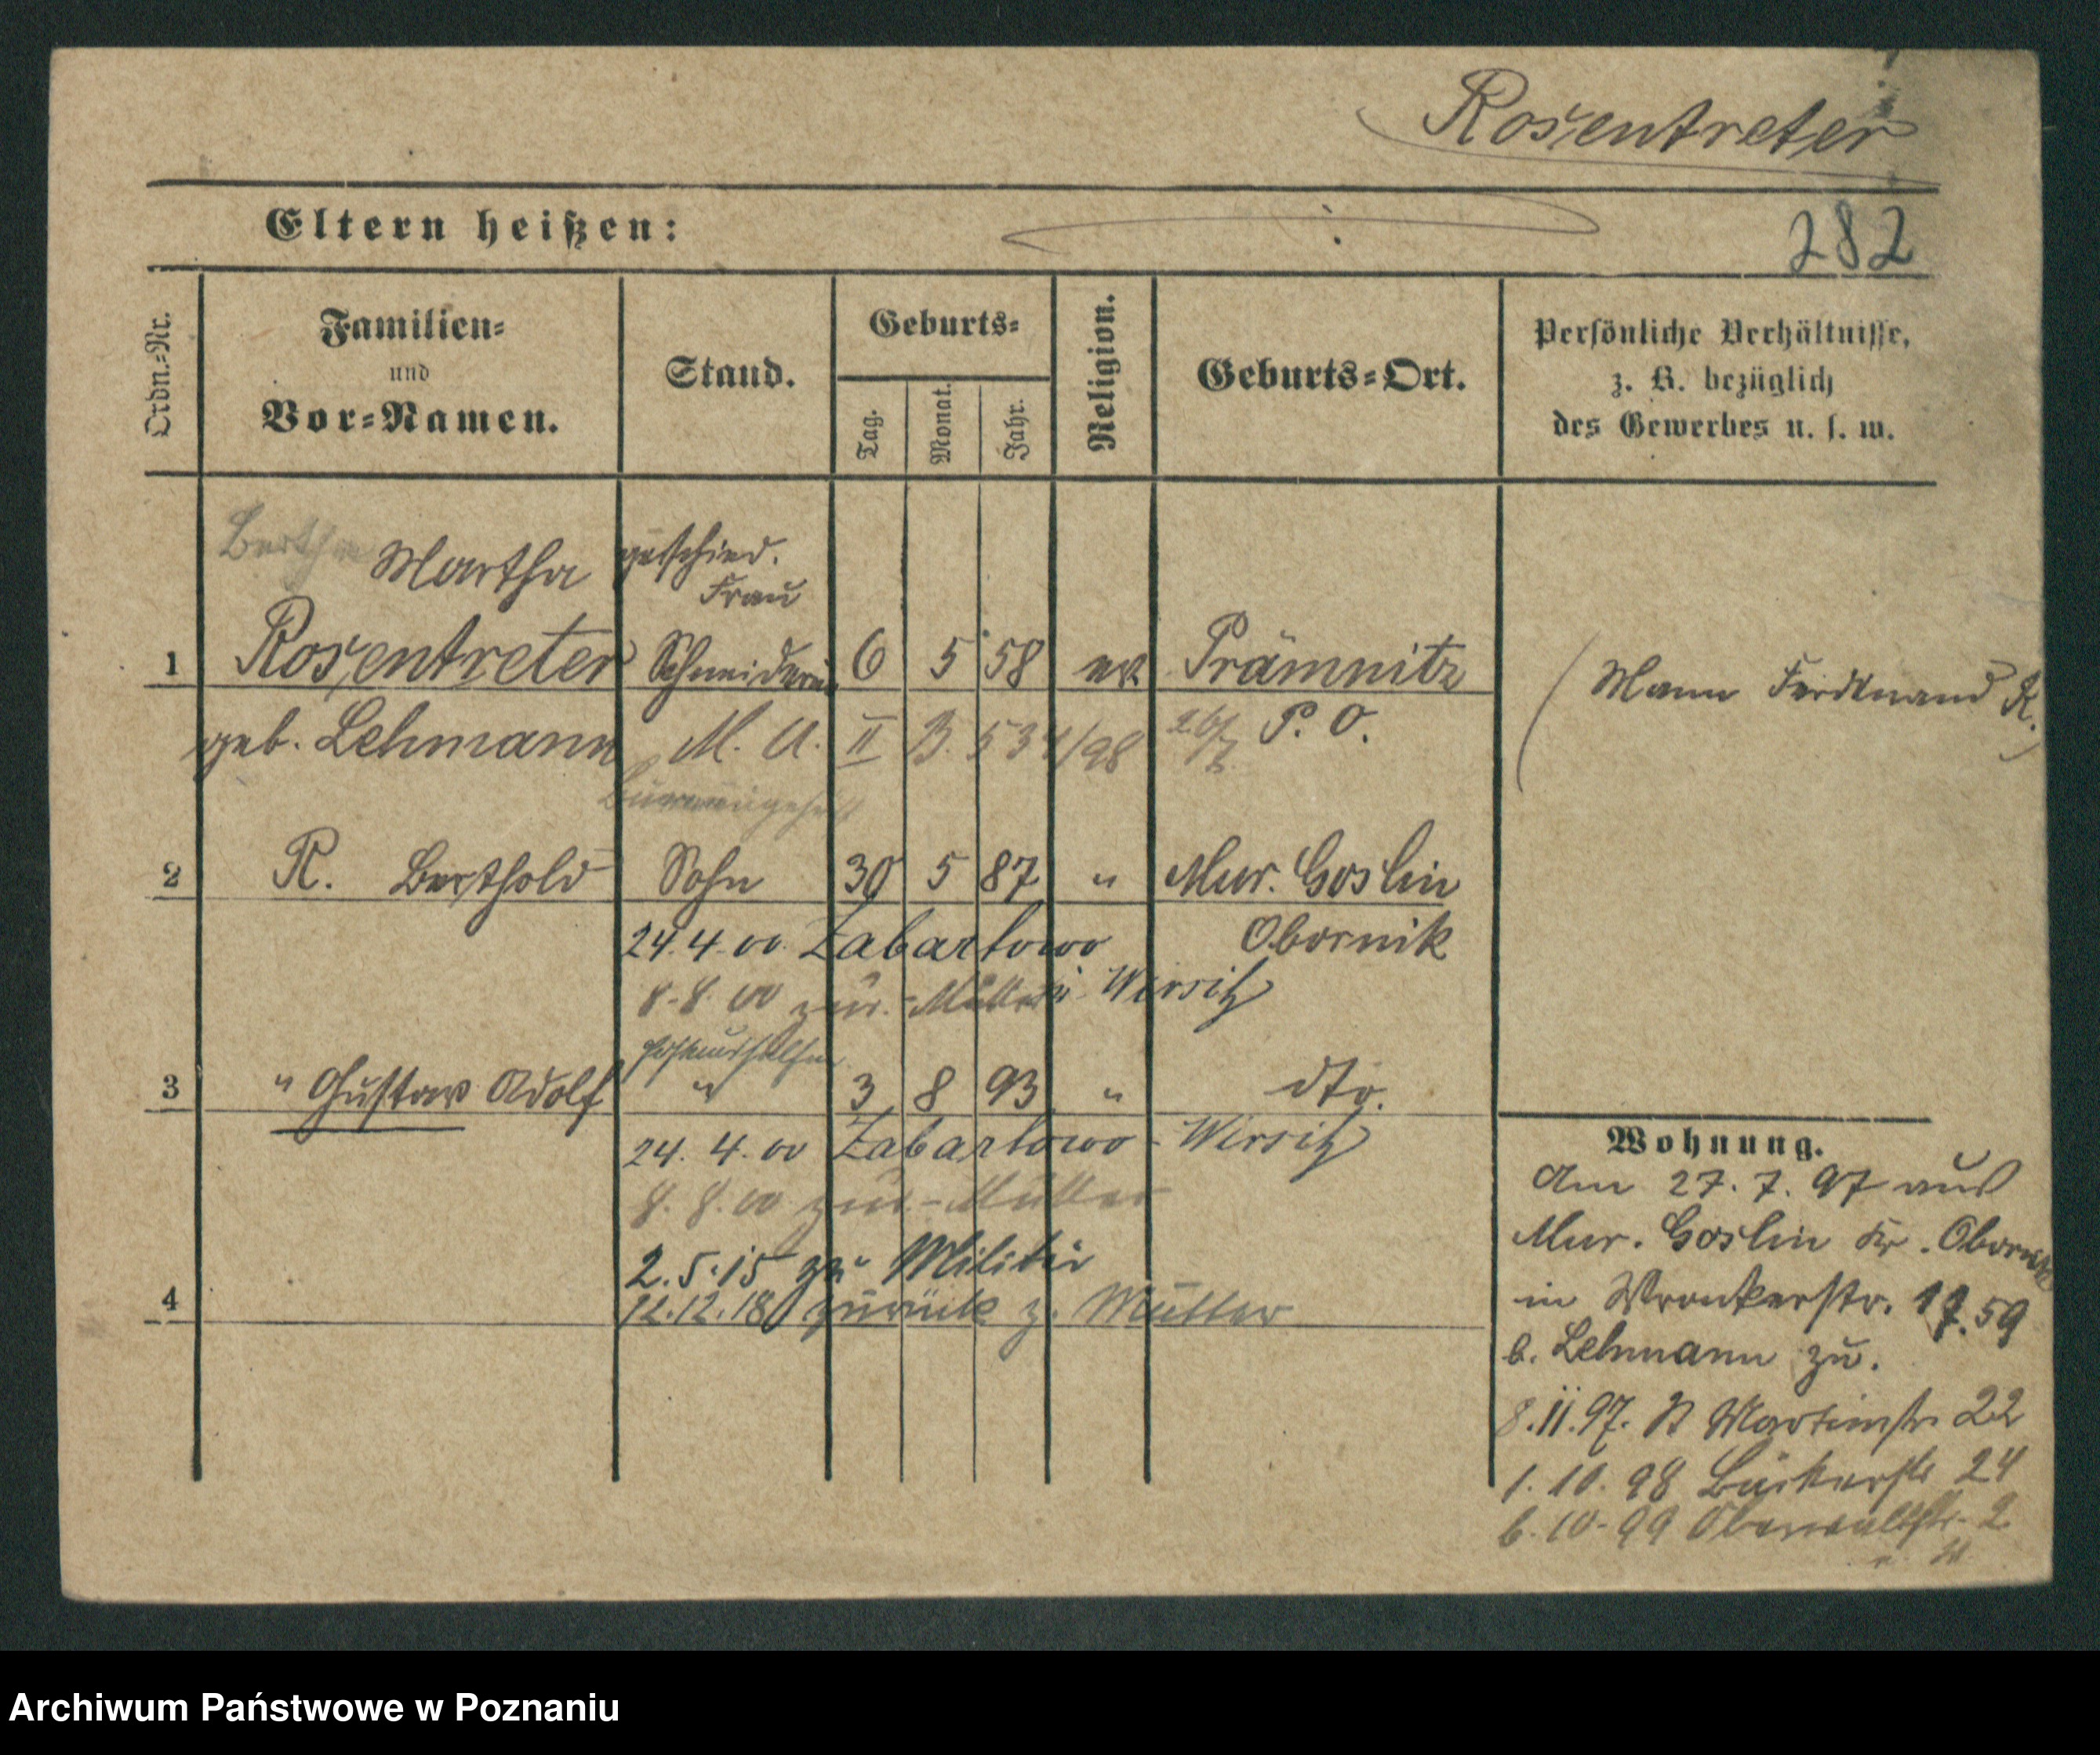 Rosentreter
Eltern heißen:
282
Ordn.=Nr.
Familien=
und
Vor=Namen.
Stand.
Geburts=
Tag.
Monat.
Jahr.
Religion.
Geburts=Ort.
Persönliche Verhältnisse,
z. B. bezüglich
des Gewerbes u. s. w.
Bertha Martha geschied.
Frau
1 Rosentreter Schneiderin 6 5 58 ev. Prämnitz
(Mann Ferdinand R.)
geb. Lehmann M. A. II B. 534/98 P. O.
2 R. Berthold Sohn 30 5 87 " Mur. Goslin
24.4.00 Zabartowo Obornik
8.8.00 zur. - Mutter Wirsitz
3 " Gustav Adolf " 3 8 93 " dto.
24.4.00 Zabartowo - Wirsitz
8.8.00 zur. - Mutter
2.5.15 zu Militär
4 12.12.18 zurück z. Mutter
Wohnung.
Am 27.7.97 aus
Mur. Goslin Kr. Obornik
in Wronkerstr. 17.59
b. Lehmann zu.
8.11.97. St Martinstr 22
1.10.98 Bäckerstr 24
6.10-99 Oberwallstr. 2
Archiwum Państwowe w Poznaniu